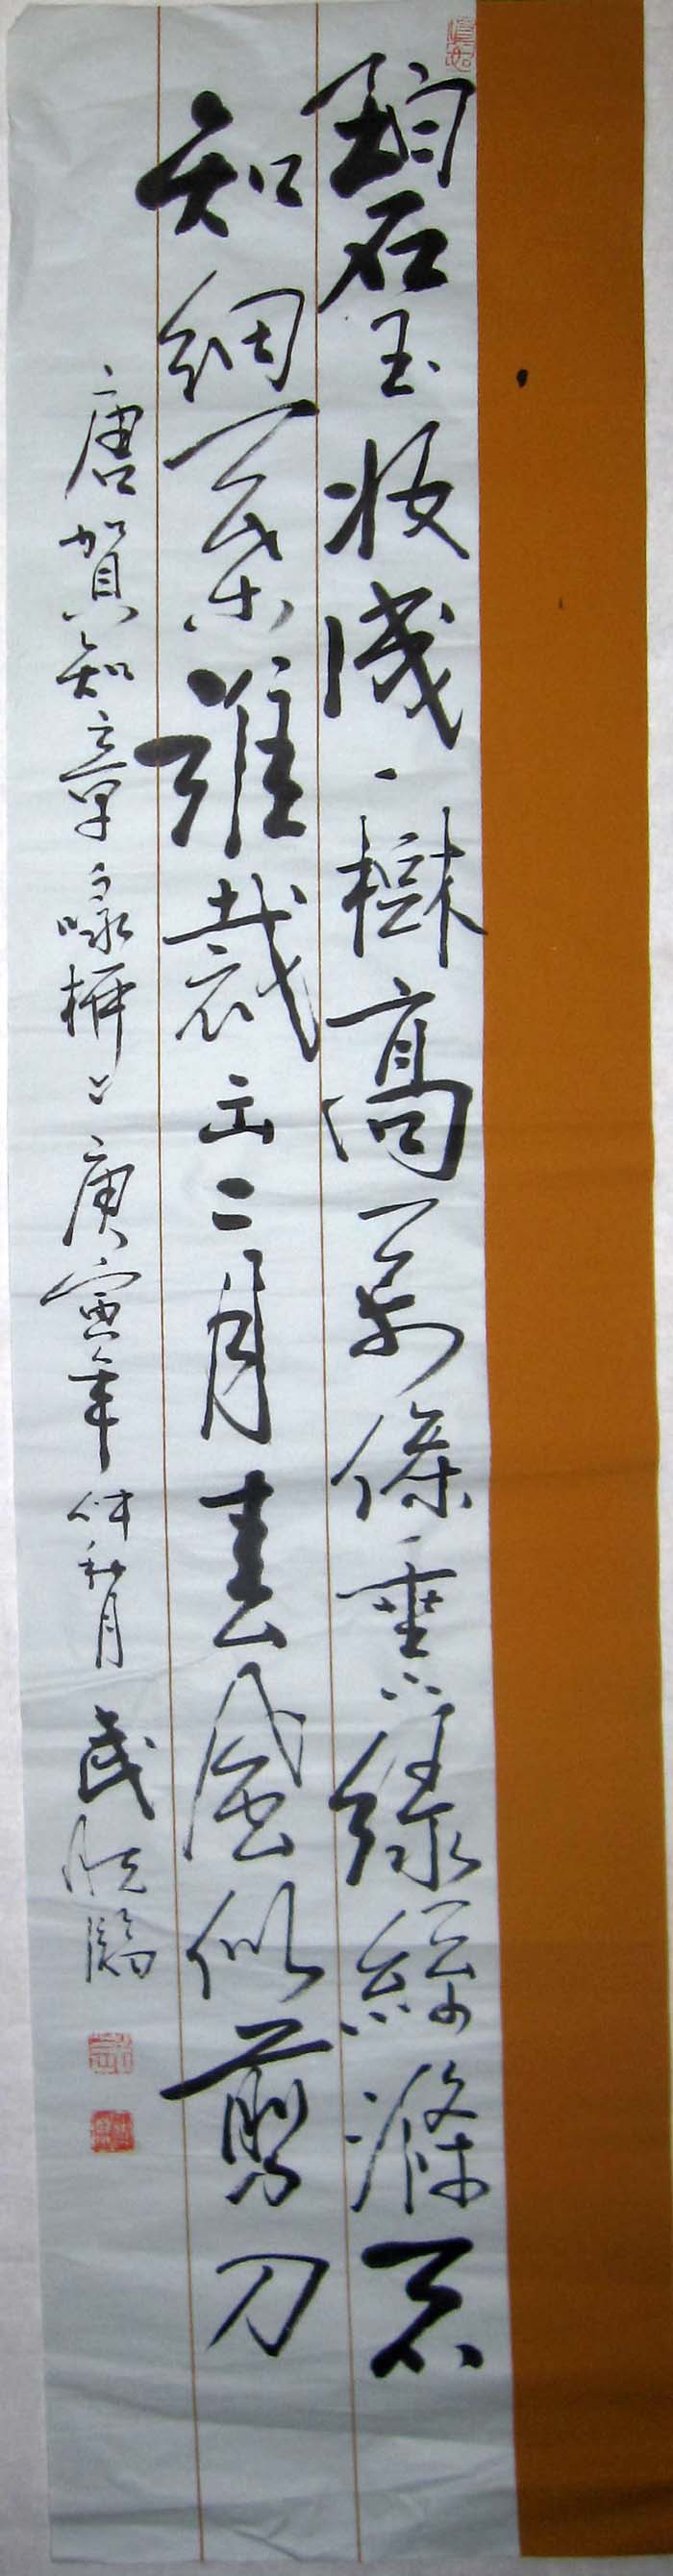 碧玉妝成一樹高万條垂下綠絲滌不
知細葉誰裁出二月春風似剪刀
唐賀知章咏柳庚寅年仲秋月武